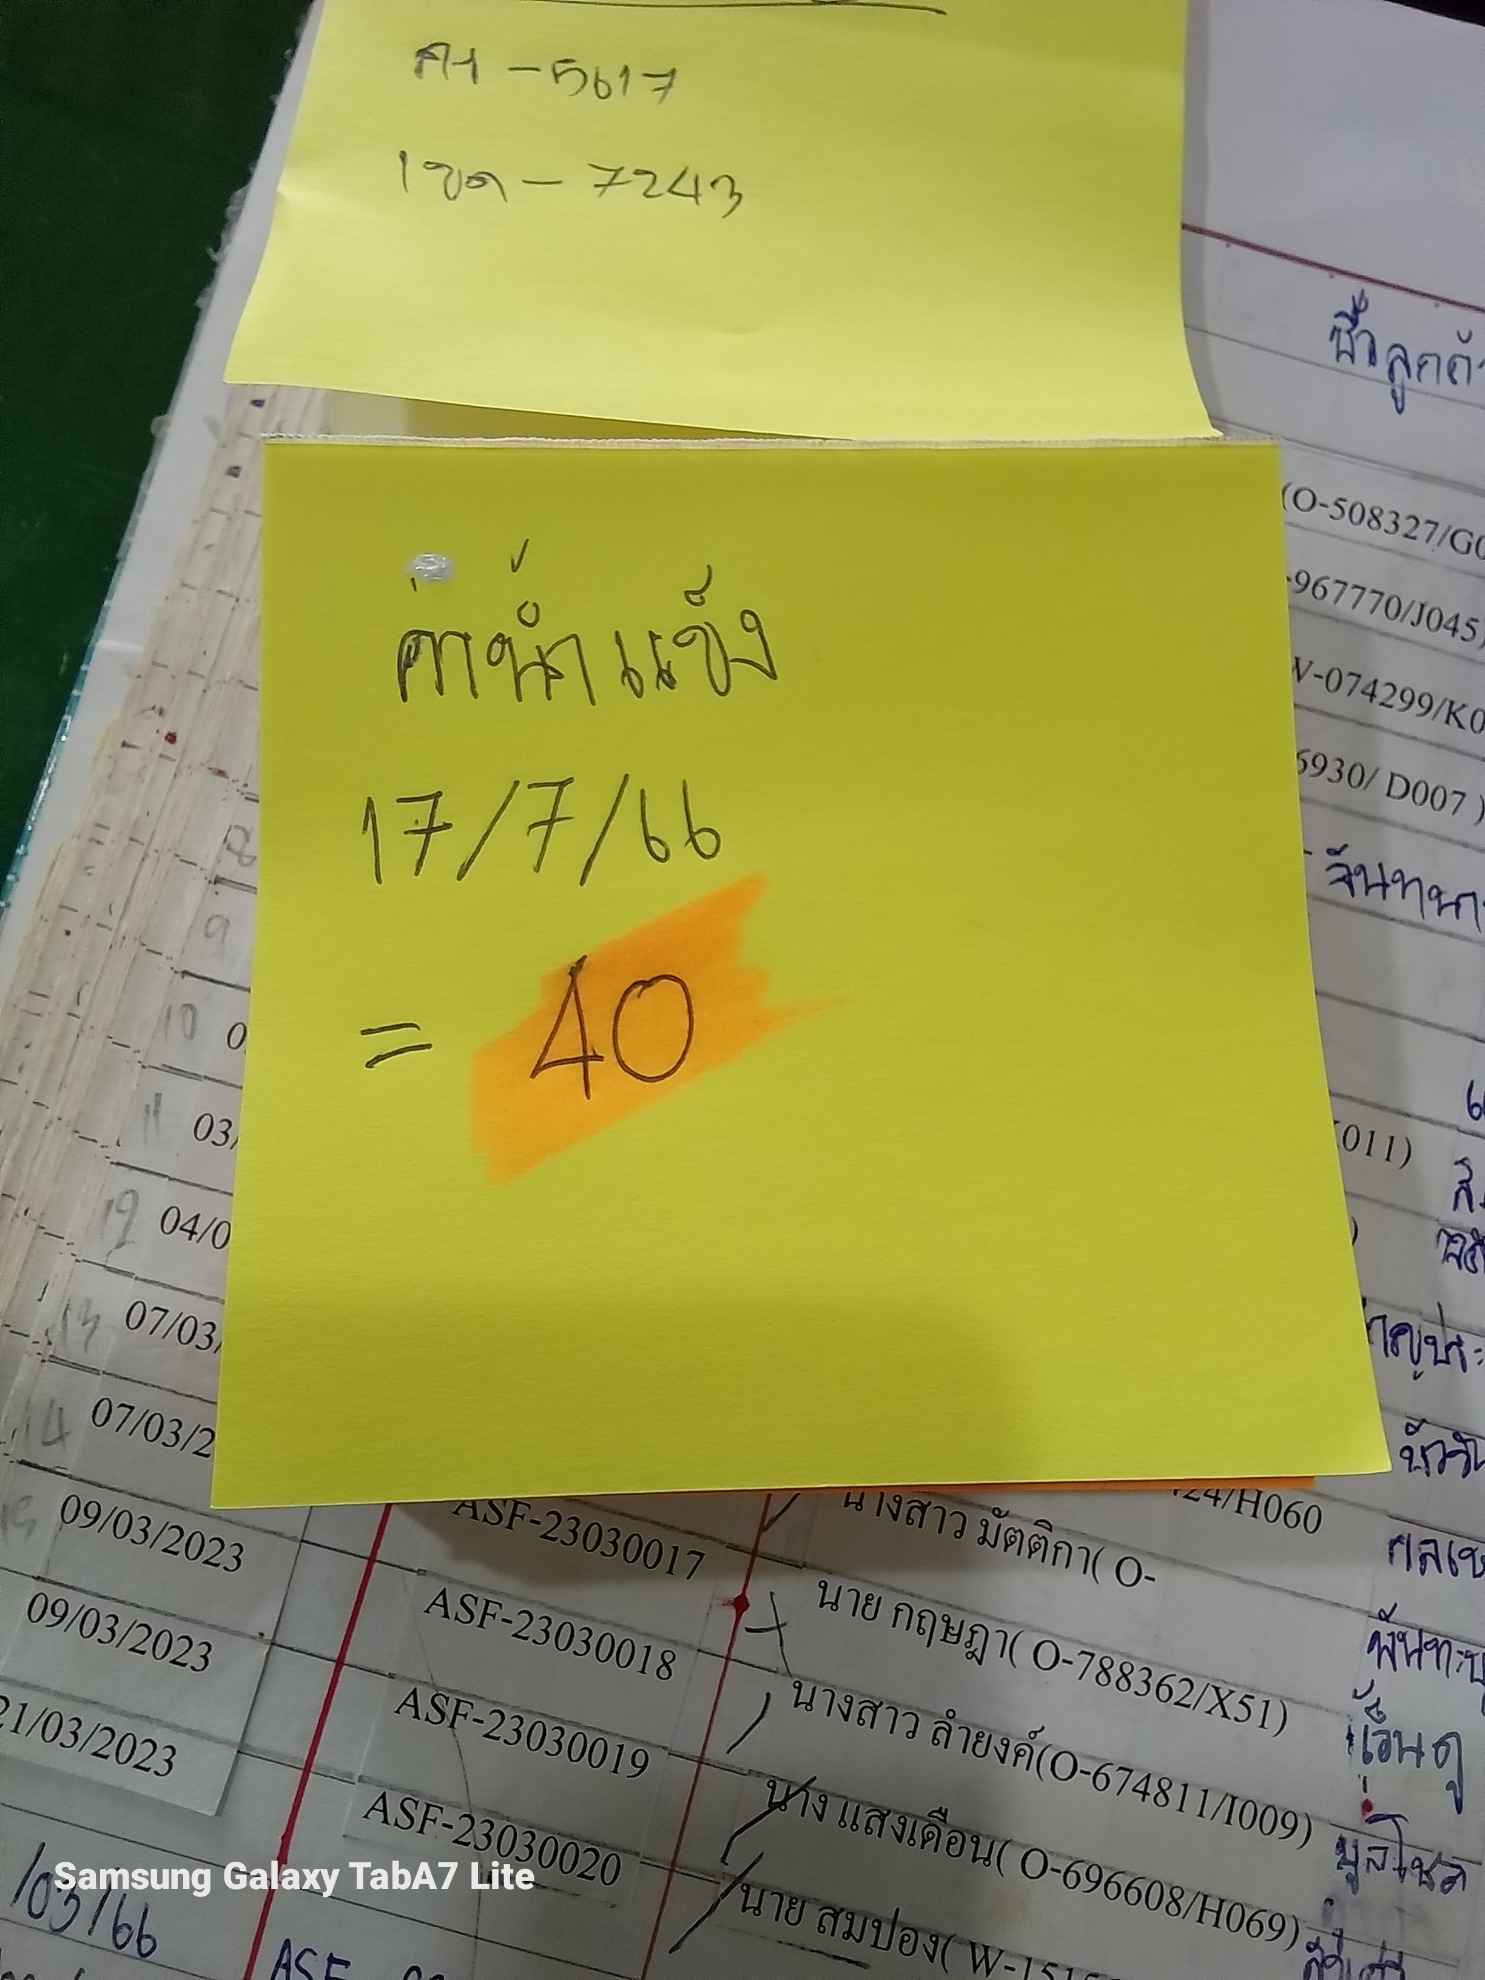 คง - 5617
เขต - 7243
ชื่อลูกค้า
ค่าน้ำแข็ง
17/7/66
= 40
(O-508327/G0
-967770/J045)
W-074299/K0
6930/ D007 )
จันทนา
9
10 0
11 03/
011)
12 04/0
13 07/03/
14 07/03/2
24/H060
09/03/2023 ASF-23030017 นางสาว มัตติกา( O-
09/03/2023 ASF-23030018 นาย กฤษฎา( O-788362/X51)
21/03/2023 ASF-23030019 นางสาว ลำยงค์(O-674811/I009)
ASF-23030020 นาง แสงเดือน( O-696608/H069)
พูลโชค
/03/66 นาย สมปอง( W-151
ASF
Samsung Galaxy TabA7 Lite